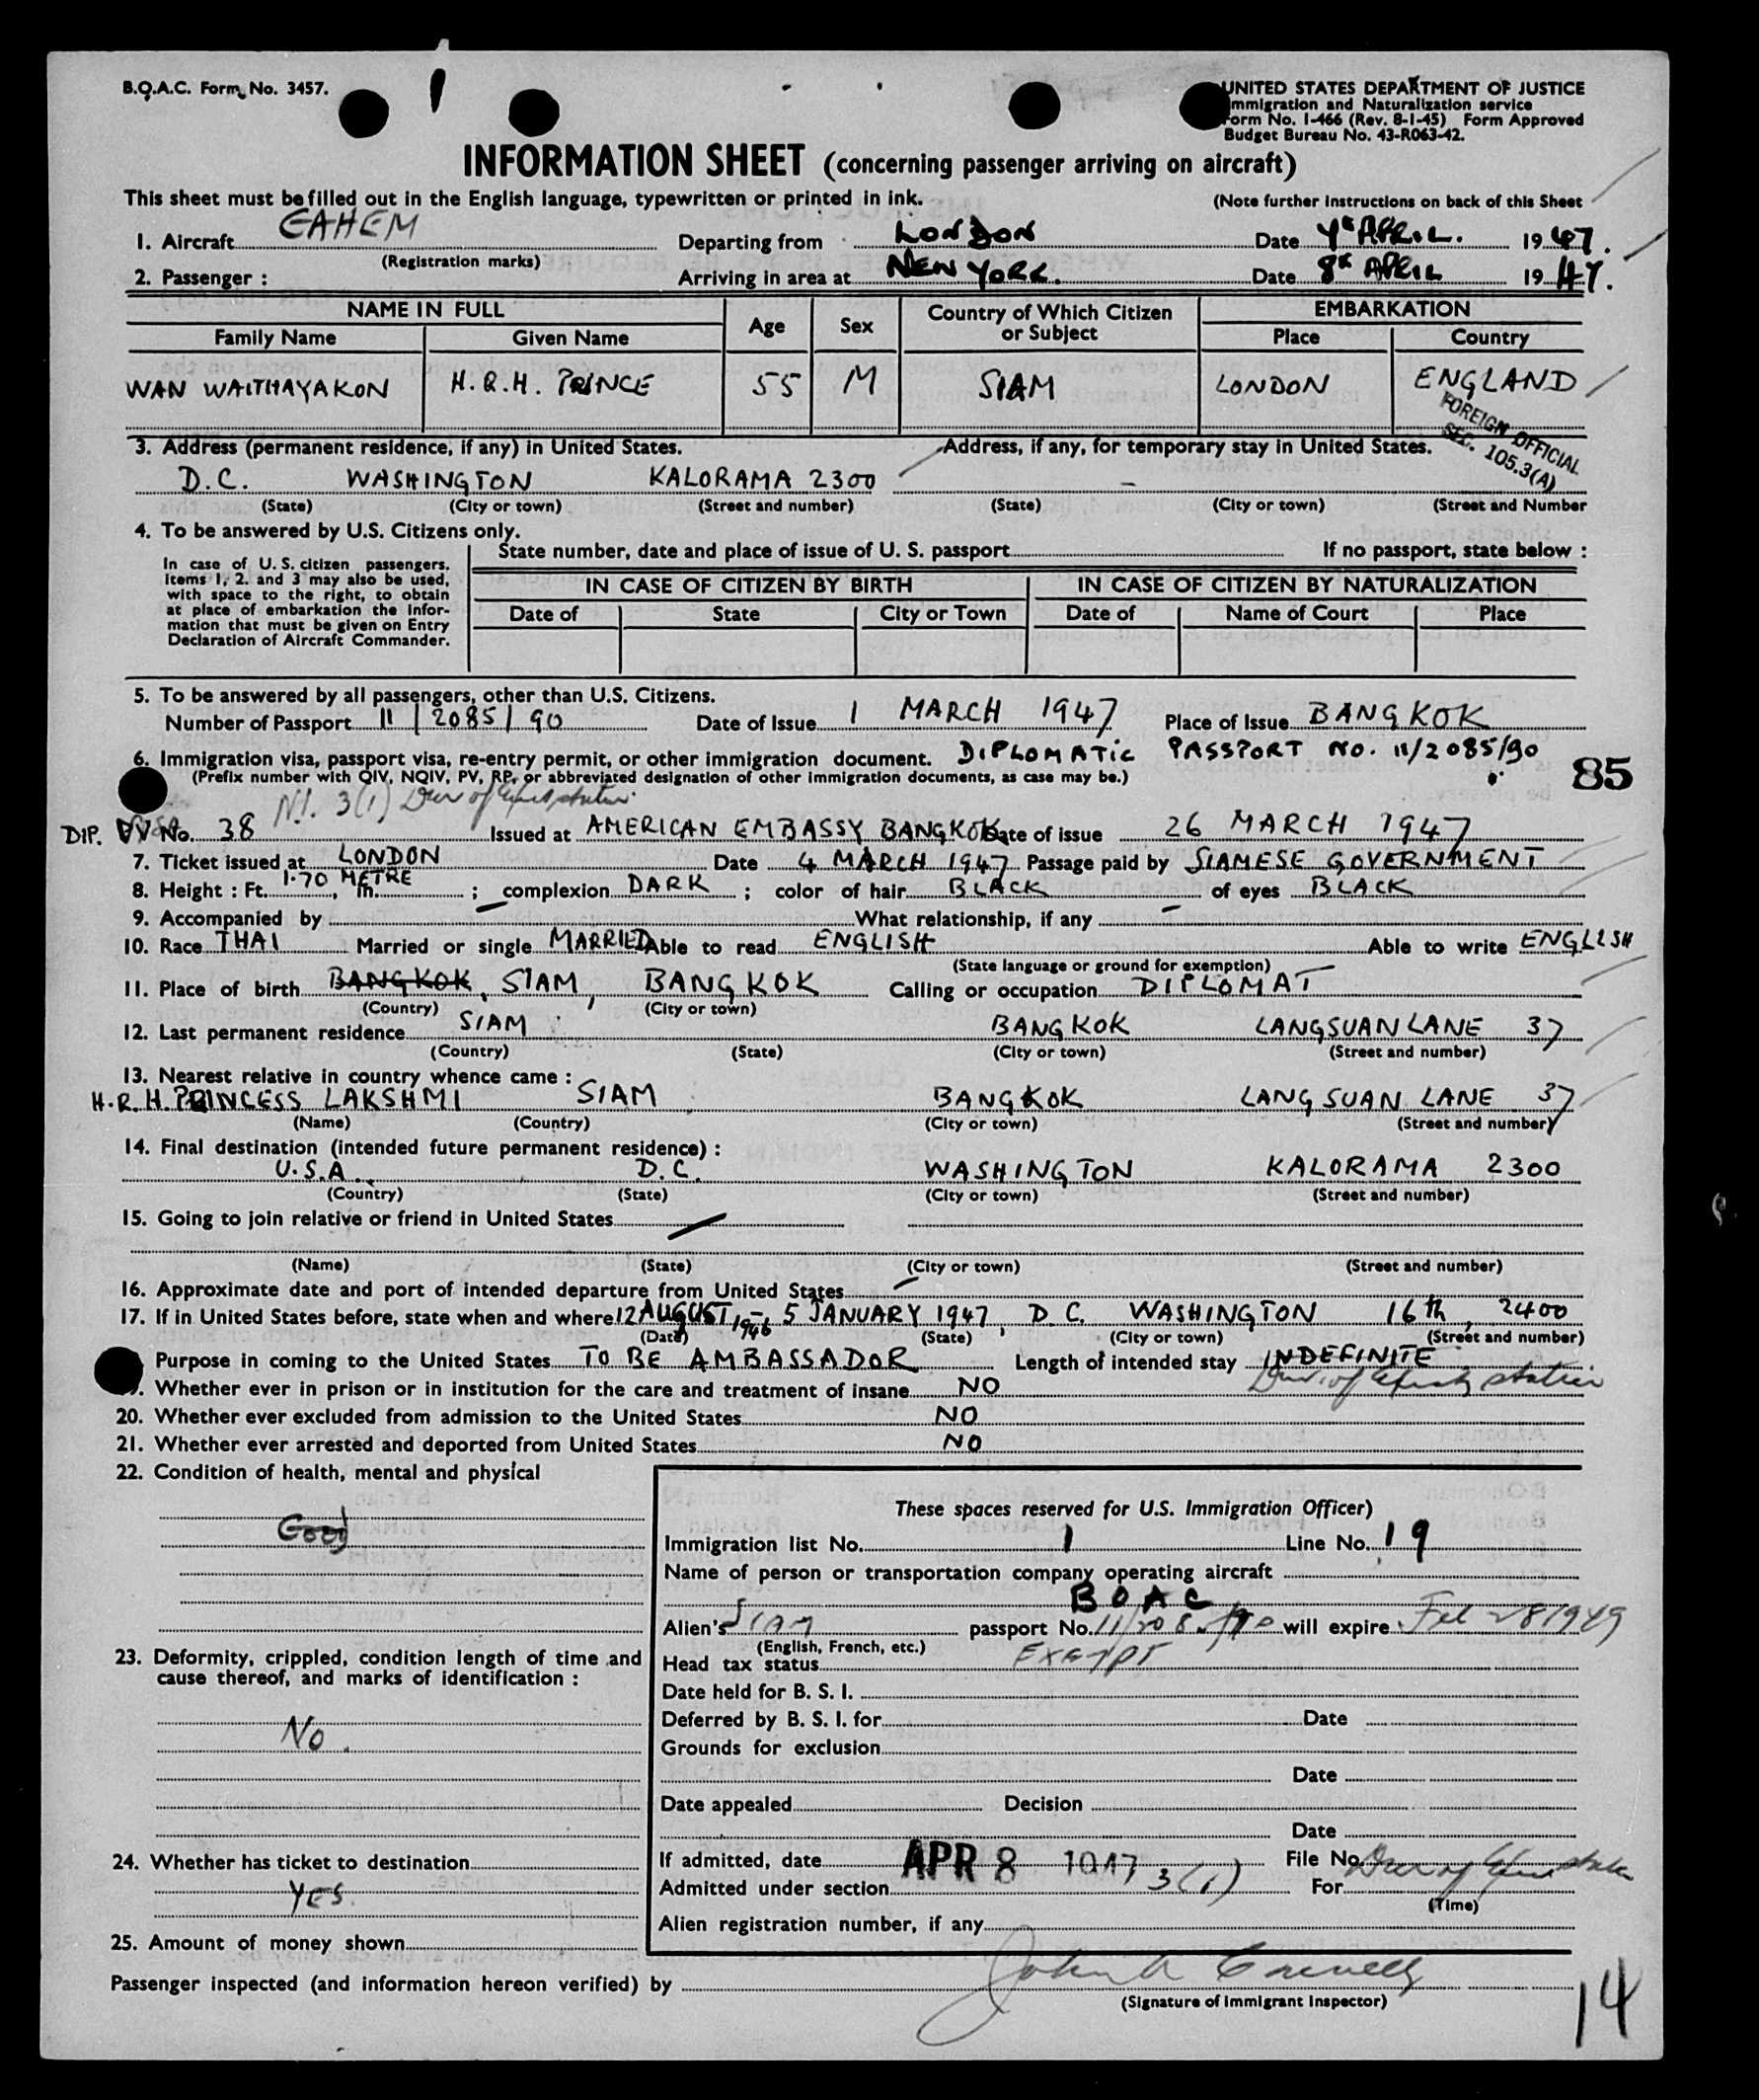 B.O.A.C. Form No. 3457.
UNITED STATES DEPARTMENT OF JUSTICE
Immigration and Naturalization service
Form No. I-466 (Rev. 8-1-45) Form Approved
Budget Bureau No. 43-R063-42.
INFORMATION SHEET (concerning passenger arriving on aircraft)
This sheet must be filled out in the English language, typewritten or printed in ink.
(Note further instructions on back of this Sheet
1. Aircraft GAHEM Departing from LONDON Date APRIL. 1947.
(Registration marks)
2. Passenger : Arriving in area at NEW YORK. Date 8th APRIL 1947.
NAME IN FULL Age Sex Country of Which Citizen or Subject EMBARKATION
Family Name Given Name Place Country
WAN WAITHAYAKON H.R.H. PRINCE 55 M SIAM LONDON ENGLAND
FOREIGN OFFICIAL
SEC. 105.3(A)
3. Address (permanent residence, if any) in United States. Address, if any, for temporary stay in United States.
D.C. WASHINGTON KALORAMA 2300 –
(State) (City or town) (Street and number) (State) (City or town) (Street and Number
4. To be answered by U.S. Citizens only.
In case of U.S. citizen passengers. Items 1, 2. and 3 may also be used, with space to the right, to obtain at place of embarkation the infor-mation that must be given on Entry Declaration of Aircraft Commander.
State number, date and place of issue of U. S. passport If no passport, state below :
IN CASE OF CITIZEN BY BIRTH IN CASE OF CITIZEN BY NATURALIZATION
Date of State City or Town Date of Name of Court Place
5. To be answered by all passengers, other than U.S. Citizens.
Number of Passport 11/2085/90 Date of Issue 1 MARCH 1947 Place of Issue BANGKOK
6. Immigration visa, passport visa, re-entry permit, or other immigration document. DIPLOMATIC PASSPORT NO. 11/2085/90
(Prefix number with QIV, NQIV, PV, RP, or abbreviated designation of other immigration documents, as case may be.)
85
N.I. 3(1) Dur of
DIP. PV No. 38 Issued at AMERICAN EMBASSY BANGKOK Date of issue 26 MARCH 1947
7. Ticket issued at LONDON Date 4 MARCH 1947 Passage paid by SIAMESE GOVERNMENT
8. Height : Ft. 1.70 METRE, In. ; complexion DARK ; color of hair BLACK of eyes BLACK
9. Accompanied by – What relationship, if any –
10. Race THAI Married or single MARRIED Able to read ENGLISH Able to write ENGLISH
(State language or ground for exemption)
11. Place of birth BANGKOK, SIAM, BANGKOK Calling or occupation DIPLOMAT
(Country) (City or town)
12. Last permanent residence SIAM BANGKOK LANGSUAN LANE 37
(Country) (State) (City or town) (Street and number)
13. Nearest relative in country whence came :
H.R.H. PRINCESS LAKSHMI SIAM BANGKOK LANGSUAN LANE 37
(Name) (Country) (City or town) (Street and number)
14. Final destination (intended future permanent residence) :
U.S.A. D.C. WASHINGTON KALORAMA 2300
(Country) (State) (City or town) (Street and number)
15. Going to join relative or friend in United States
(Name) (State) (City or town) (Street and number)
16. Approximate date and port of intended departure from United States
17. If in United States before, state when and where 12 AUGUST 1946 – 5 JANUARY 1947, D.C. WASHINGTON 16th, 2400
(Date) (State) (City or town) (Street and number)
Purpose in coming to the United States TO BE AMBASSADOR Length of intended stay INDEFINITE
Dur. of
Whether ever in prison or in institution for the care and treatment of insane NO
20. Whether ever excluded from admission to the United States NO
21. Whether ever arrested and deported from United States NO
22. Condition of health, mental and physical
Good
These spaces reserved for U.S. Immigration Officer)
Immigration list No. 1 Line No. 19
Name of person or transportation company operating aircraft
BOAC
Alien's Siam passport No. 11/2085/90 will expire Feb 28 1949
(English, French, etc.)
Head tax status EXEMPT
23. Deformity, crippled, condition length of time and cause thereof, and marks of identification :
No.
Date held for B. S. I.
Deferred by B. S. I. for Date
Grounds for exclusion
Date
Date appealed Decision
Date
24. Whether has ticket to destination
YES.
If admitted, date APR 8 1947 File No.
Admitted under section 3(1) For Dur of
(Time)
Alien registration number, if any
25. Amount of money shown
Passenger inspected (and information hereon verified) by John
(Signature of Immigrant Inspector)
14